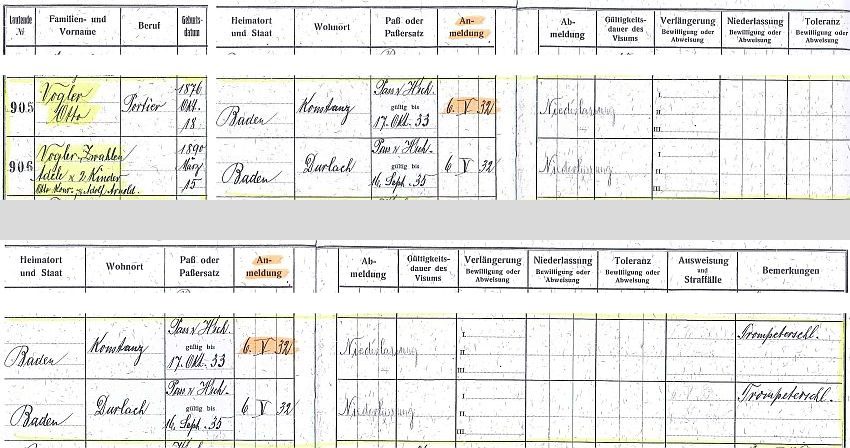 Laufende № Familien- und Vorname Beruf Geburts-datum Heimatort und Staat Wohnort Paß oder Paßersatz An-meldung Ab-meldung Gültigkeits-dauer des Visums Verlängerung Bewilligung oder Abweisung Niederlassung Bewilligung oder Abweisung Toleranz Bewilligung oder Abweisung
1876
Vogler Pass v. Hsch. I.
905 Otto Portier Okt. Baden Konstanz gültig bis 6. V 32 Niederlassung II.
18. 17. Okt. 33 III.
Vogler-Zwahlen 1890 Pass v. Hsch. I.
906 Adele x 2 Kinder März Baden Durlach gültig bis 6 V 32 Niederlassung II.
Otto Konr. u. Adolf Arnold. 15 16. Sept. 35 III.
Heimatort und Staat Wohnort Paß oder Paßersatz An-meldung Ab-meldung Gültigkeits-dauer des Visums Verlängerung Bewilligung oder Abweisung Niederlassung Bewilligung oder Abweisung Toleranz Bewilligung oder Abweisung Ausweisung und Straffälle Bemerkungen
Pass v. Hsch. I. Trompeterschl.
Baden Konstanz gültig bis 6. V 32 Niederlassung II.
17. Okt. 33 III.
Pass v. Hsch. I. Trompeterschl.
Baden Durlach gültig bis 6 V 32 Niederlassung II.
16. Sept. 35 III.